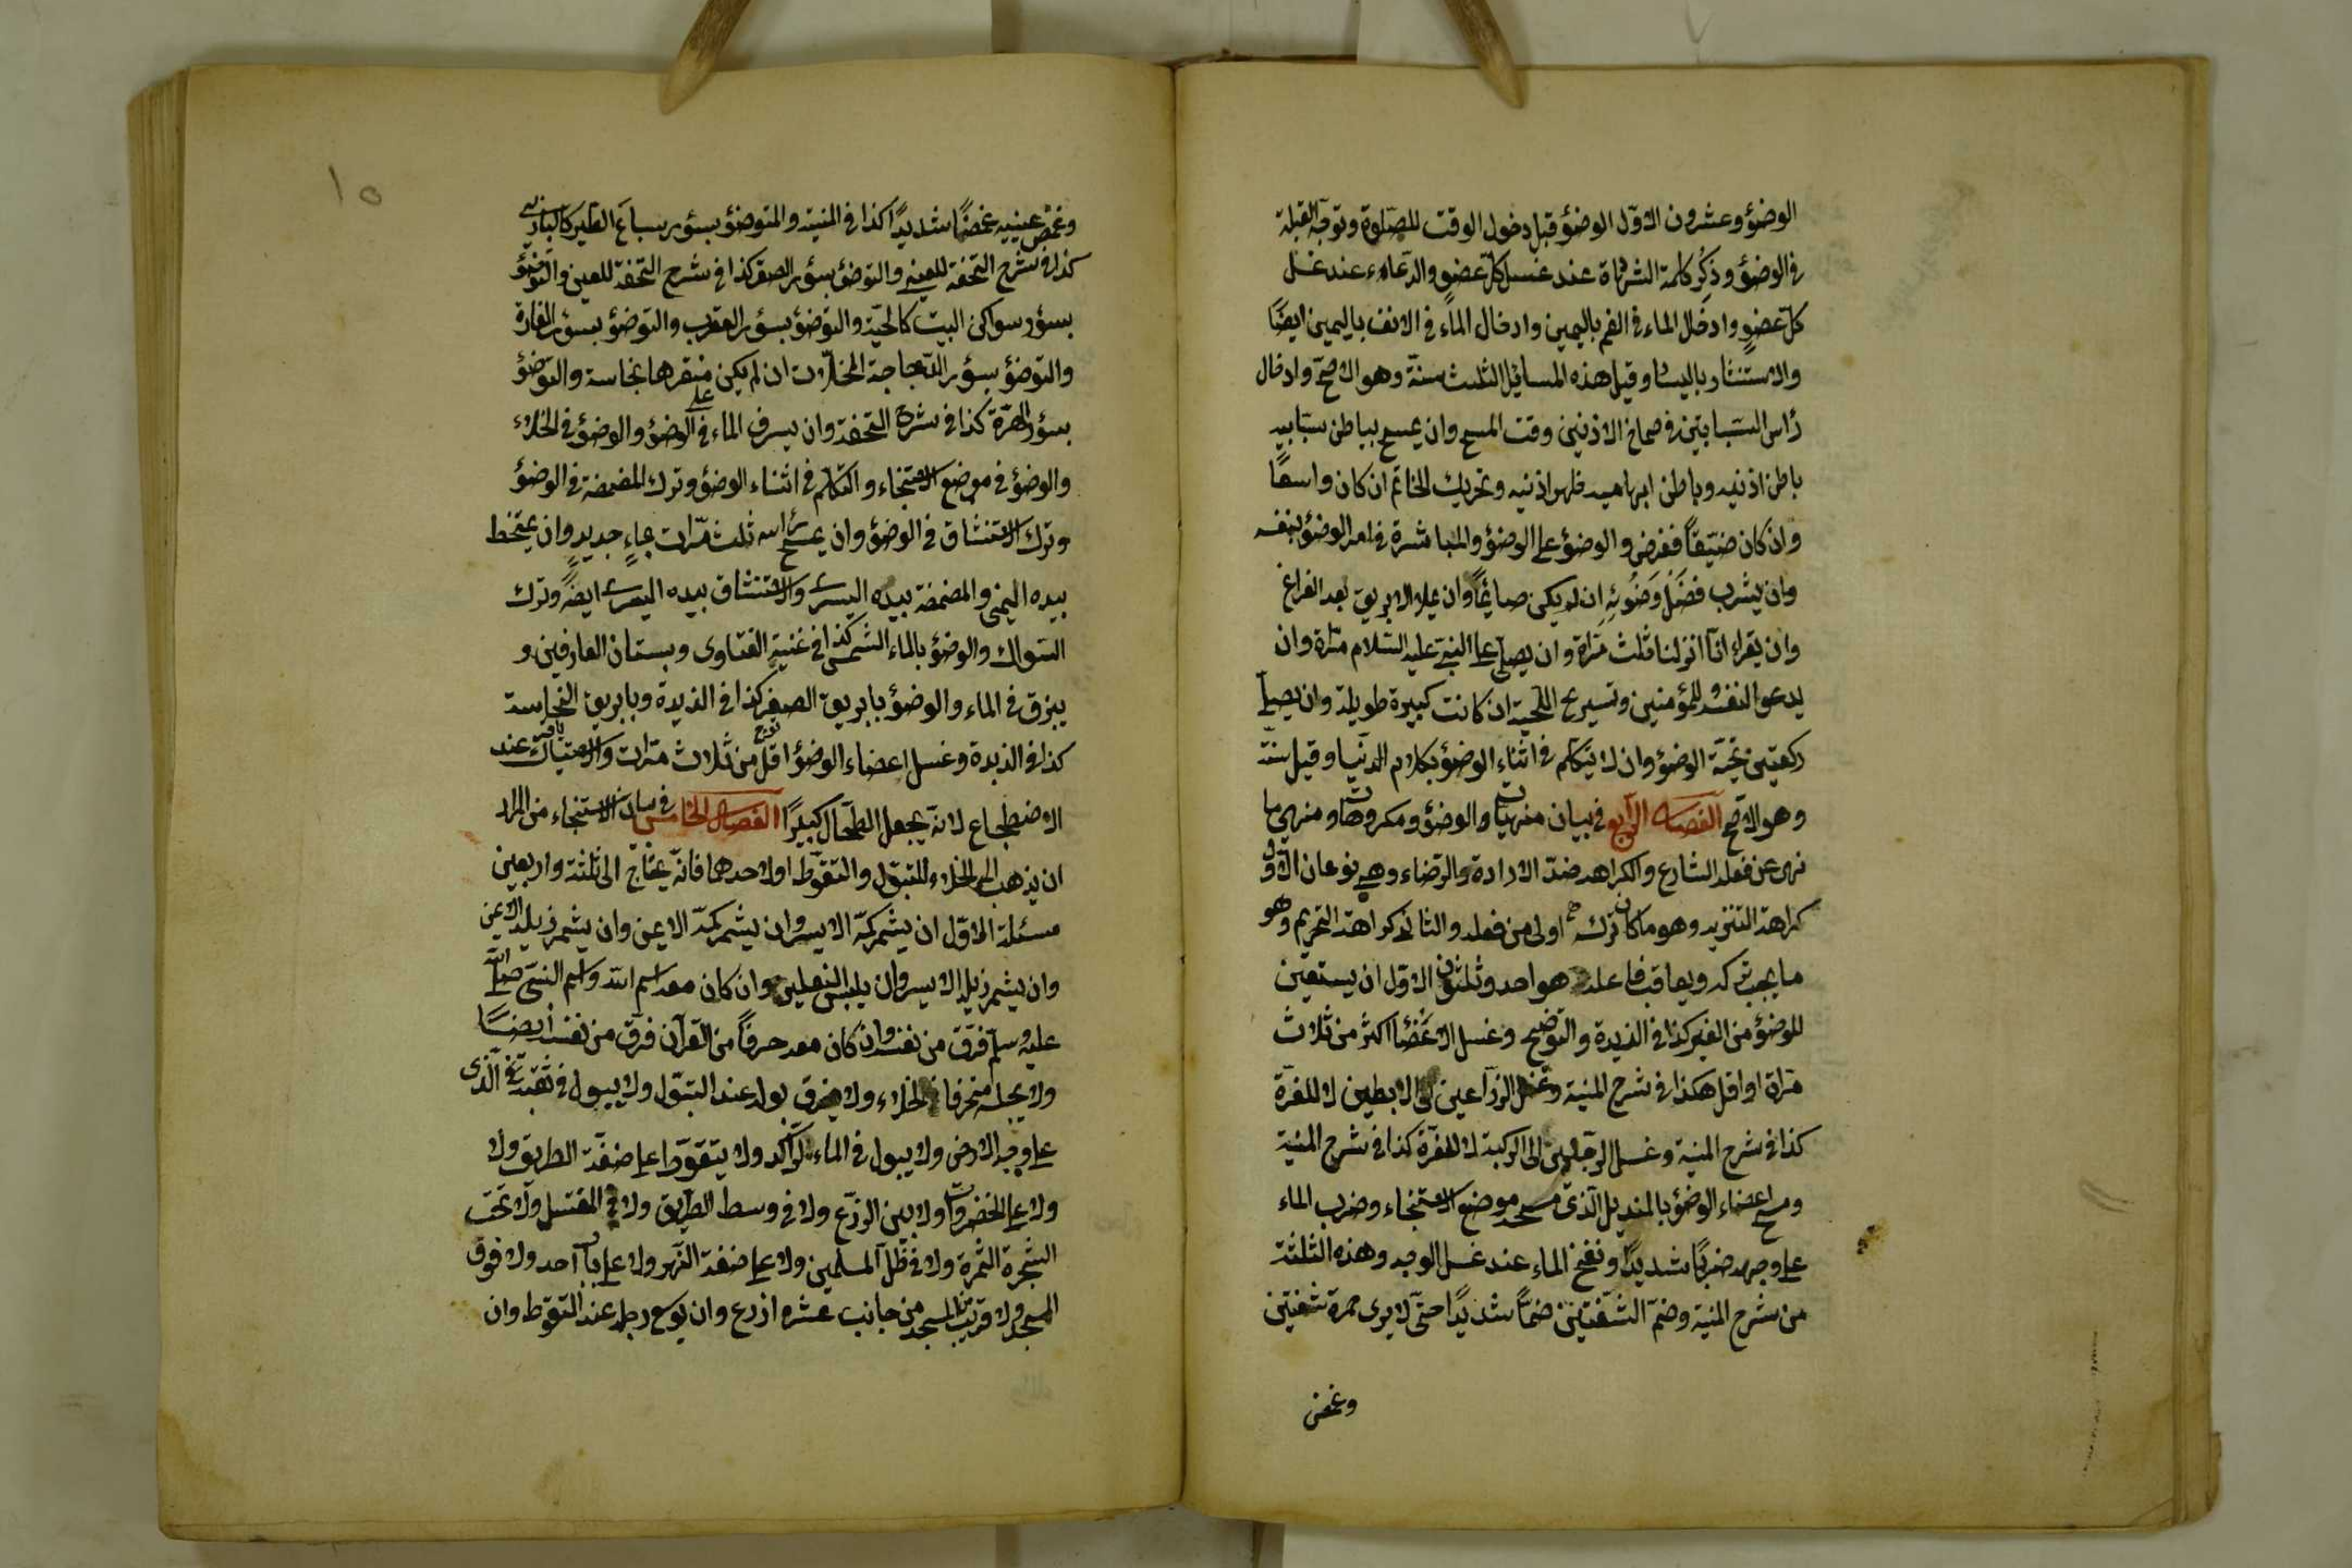 الوضؤ وعشرون الاوّل الوضؤ قبل دخول الوقت للصّلوة وتوجّه القبلة
فى الوضؤ وذكر كلمة الشهادة عند غسل كلّ عضوٍ والدّعاء عند غسل
كلّ عضوٍ وادخال الماء فى الفم باليمين وادخال الماء فى الانف باليمين ايضًا
والاستنثار باليسار وقيل هذه المسائل الثلث سنّة وهو الاصحّ وادخال
رأس السّبابتين فى صماخ الاذنين وقت المسح وان يمسح بباطن سبّابيه
باطن اذنيه وباطن ابهاميه ظهر اذنيه وتحريك الخاتم ان كان واسعًا
وان كان ضيّقًا ففرض والوضؤ على الوضؤ والمباشرة فى امر الوضؤ بنفسه
وان يشرب فضل وَضُوئِهِ ان لم يكن صائمًا وان يملأ الابريق بعد الفراغ
وان يقراء انّا انزلنا ثلث مرّاة وان يصلى على النبىّ عليه السّلام مرّة وان
يدعو النفسه للمؤمنين وتسريح اللّحية ان كانت كبيرة طويلة وان يصلّى
ركعتين تحيّة الوضؤ وان لا يتكلّم فى اثناء الوضؤ بكلام الدّنيا وقيل سنّة
وهو الاصحّ الفصل الرّابع فى بيان منهيّات الوضؤ ومكروهاته ومنهى ما
نهى عن فعله الشارع والكراهه ضدّ الارادة والرّضاء وهى نوعان الاوّل
كراهة التنزيه وهو ما كان تركه اولى من فعله والثانى كراهة التحريم وهو
ما يجب تركه ويعاقب فاعله هو احد وثلثون الاوّل ان يستعين
للوضؤ من الغير كذا فى الزبدة والتوضيح وغسل الاعضا اكثر من ثلاث
مرّاة او اقل هكذا فى شرح المنية وغسل الذراعين الى الابطين لا للغرّة
كذا فى شرح المنية وغسل الرّجلين الى الركبة لا للغرّة كذا فى شرح المنية
ومسح اعضاء الوضؤ بالمنديل الّذى مسح به موضع الاستنجاء وضرب الماء
على وجهه ضربًا شديدًا ونفخ الماء عند غسل الوجه وهذه الثلثة
من شرح المنية وضمّ الشّفتين ضمًّا شديدًا حتّى لا يرى حمرة شفتين
وغمض
١٥
وغمض عينيه غمضًا شديدًا كذا فى المنية والمتوضؤ بسؤر سباع الطير كالبازى
كذا فى شرح التحفة للعينى والتوضؤ بسؤر الصقر كذا فى شرح التحفة للعينى والتوضؤ
بسؤر سواكن البيت كالحيّة والتوضؤ بسؤر العقرب والتوضؤ بسؤر الفارة
والتوضؤ بسؤر الدّجاجة المخلّات ان لم يكن منقرها نجاسة والتوضؤ
بسؤر الهرّة كذا فى شرح التحفة وان يسرف الماء فى الوضؤ والوضؤ فى الخلاء
والوضؤ فى موضع الاستنجاء والتكلّم فى اثناء الوضؤ وترك المضمضة فى الوضؤ
وترك الاستنشاق فى الوضؤ وان يمسح رأسه ثلث مرّات بماءٍ جديدٍ وان يمتخط
بيده اليمنى والمضمضة بيده اليسرى والاستنشاق بيده اليسرى ايضًا وترك
السّواك والوضؤ بالماء الشمسى كذا فى غنية الفتاوى وبستان العارفين و
يبزق فى الماء والوضؤ بابريق الصفر كذا فى الذبدة وبابريق النحاسة
كذا فى الذبدة وغسل اعضاء الوضؤ اقل من ثلاث مرّات والاستياك عند
الاضطجاع لانّه يجعل الطحال كبيرًا الفصل الخامس فى بيان الاستنجاء من اراد
ان يذهب الى الخلاء للتبوّل والتغوّط او لاحدهما فانّه يحتاج الى ثلثة واربعين
مسئلة الاوّل ان يشمر كمّه الايسر وان يشمر كمّه الايمن وان يشمر ذيله الايمن
وان يشمر ذيله الايسر وان يلبس النعلين وان كان معه اسم الله واسم النبىّ صلّى الله
عليه وسلم فرّق من نفسه وان كان معه حرفًا من القرآن فرّق من نفسه ايضًا
ولا يجلس منحرفا الخلاء ولا يفرق بوله عند التبوّل ولا يبول فى ثقبة الّذى
على وجه الارض ولا يبول فى الماء الرّاكد ولا يتغوّط على ضفّة الطريق ولا
ولا على الخضروات ولا بين الزرع ولا فى وسط الطريق ولا فى المغتسل ولا تحت
الشّجرة الثمرة ولا فى ظلّ المسلمين ولا على ضفة النّهر ولا على باب احد ولا فوق
المسجد ولا قريب المسجد من جانب عشره اذرع وان يوسع رجله عند التغوّط وان